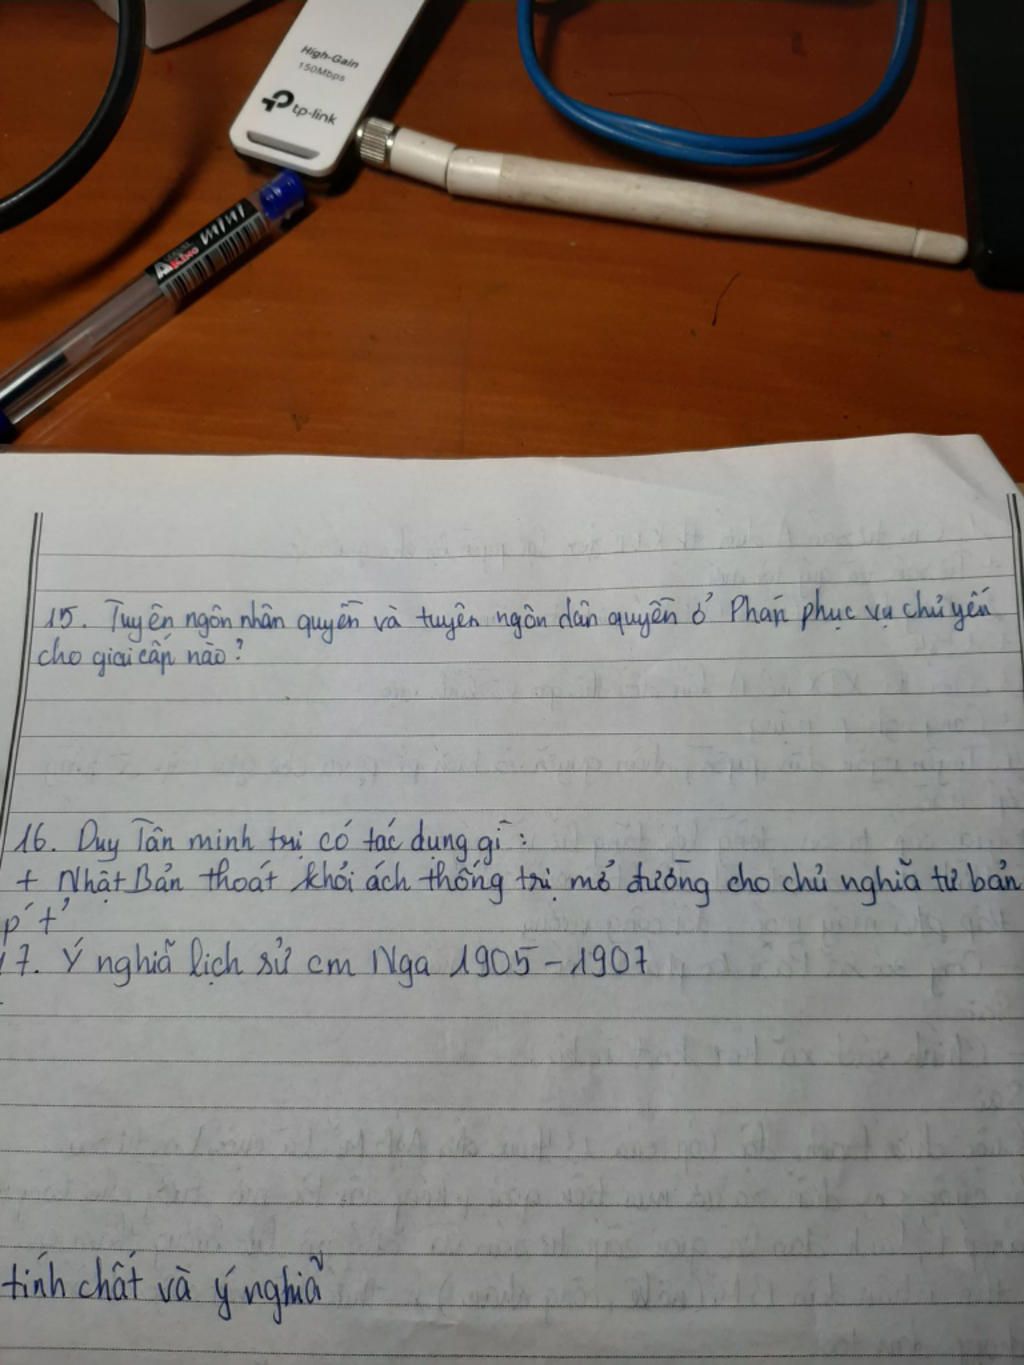 High-Gain
150Mbps
tp-link
mini
15. Tuyên ngôn nhân quyền và tuyên ngôn dân quyền ở Pháp phục vụ chủ yếu
cho giai cấp nào?
16. Duy Tân minh trị có tác dụng gì:
+ Nhật Bản thoát khỏi ách thống trị mở đường cho chủ nghĩa tư bản
p't'
17. Ý nghĩa lịch sử cm Nga 1905-1907
tính chất và ý nghĩa